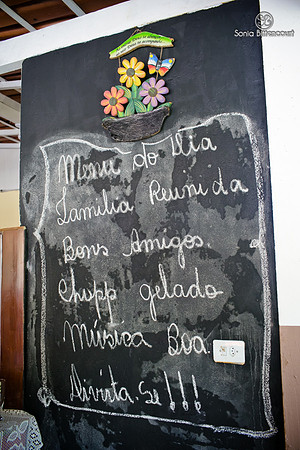 Sonia Bittencourt
Menu do Dia
Familia Reunida
Bons Amigos.
Chopp gelado
Música Boa.
Divirta-se!!!